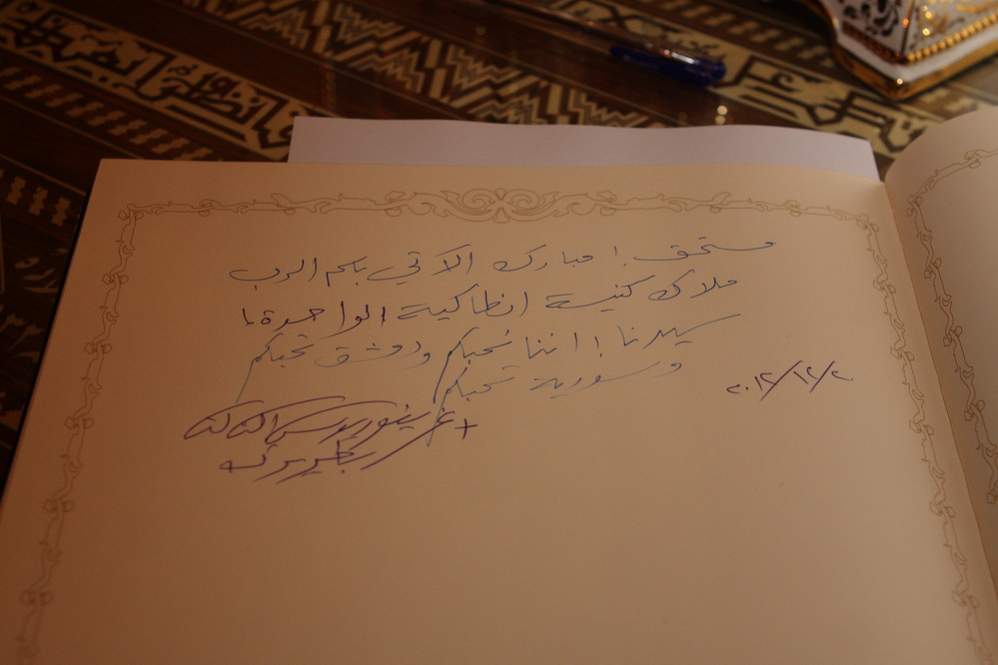 مستحق! مبارك الآتي باسم الرب
ملاك كنيسة انطاكية الواحدة،
سيدنا! اننا نحبكم ودمشق تحبكم
وسورية تحبكم
٢٠١٢/١٢/٢٠
+ غريغوريوس الثالث
بطريرك